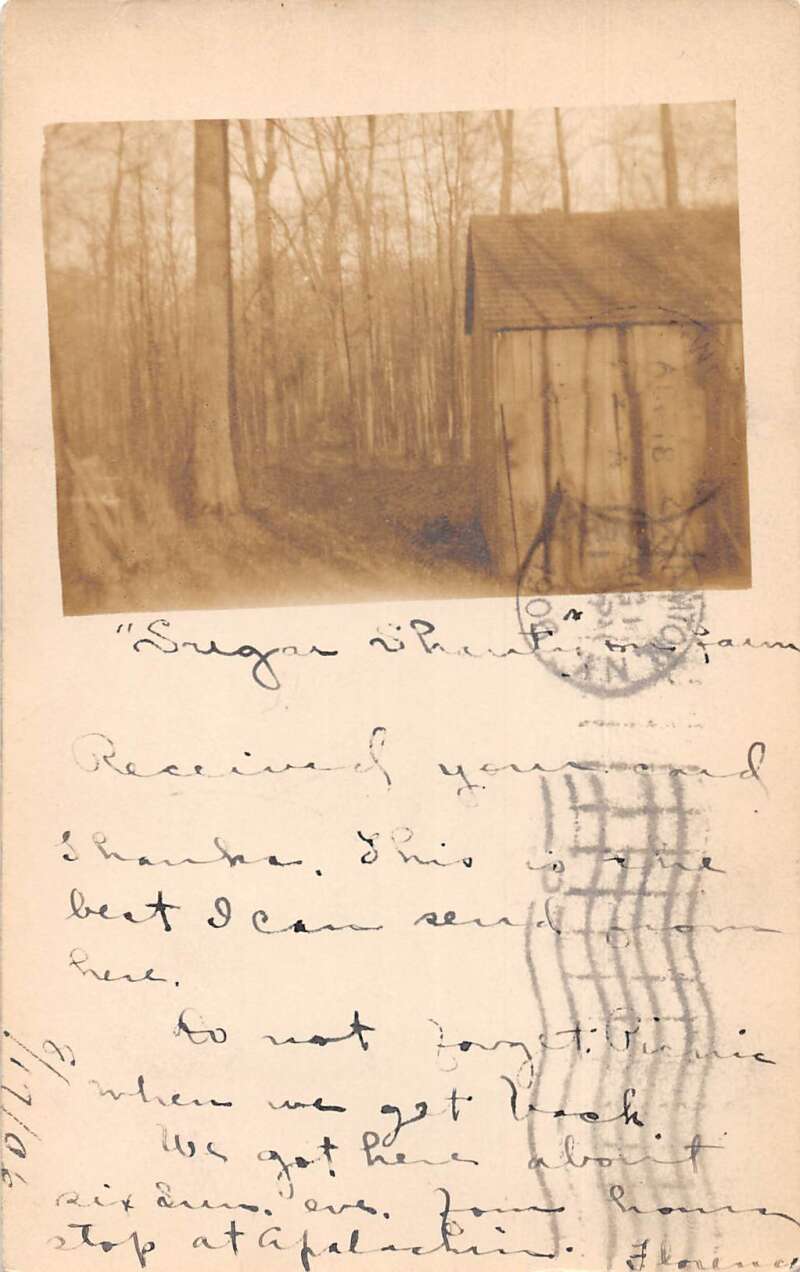 "Sugar Shanty" on farm
Received your card
Thanks. This is the
best I can send from
here.
Do not forget Picnic
when we get back
We got here about
six Sun. eve. Four hour
stop at Apalachin. Florence
8/17/06
N.Y.